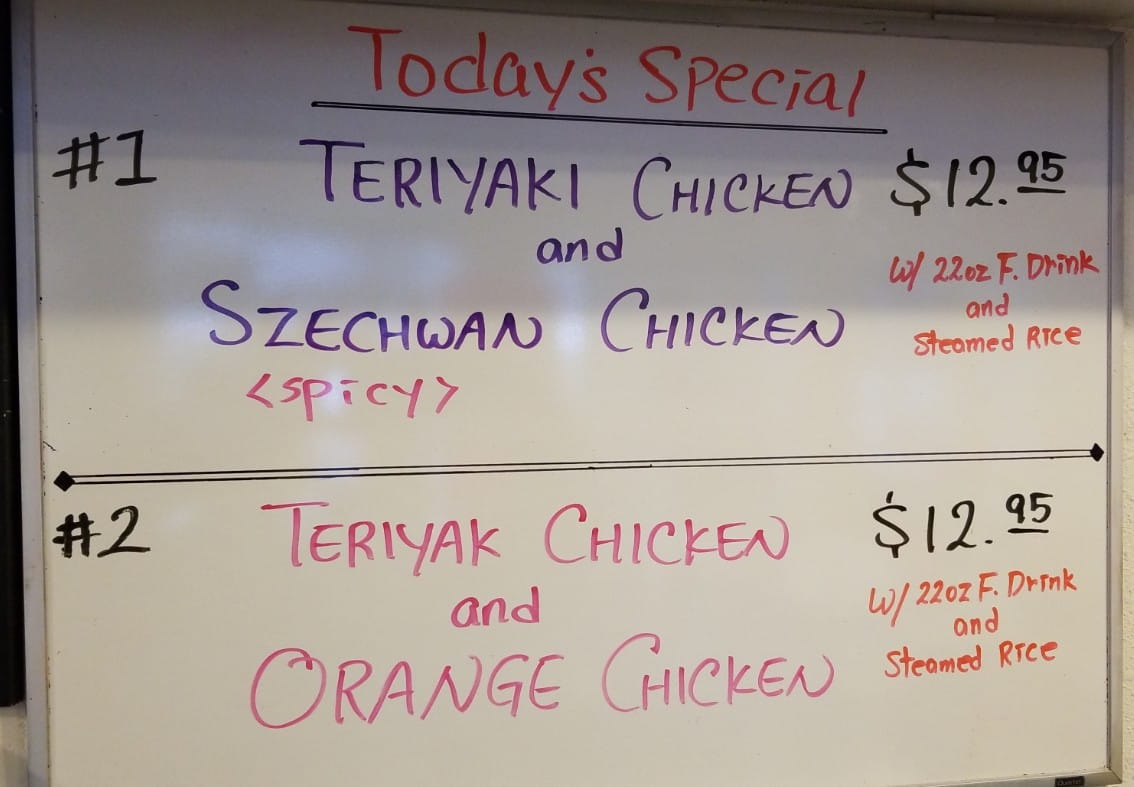 Today's Special
#1 TERIYAKI CHICKEN $12.95
and
w/ 22oz F. Drink
and
SZECHWAN CHICKEN
Steamed Rice
<spicy>
#2 TERIYAK CHICKEN $12.95
w/ 22oz F. Drink
and
and
Steamed Rice
ORANGE CHICKEN
Quartet